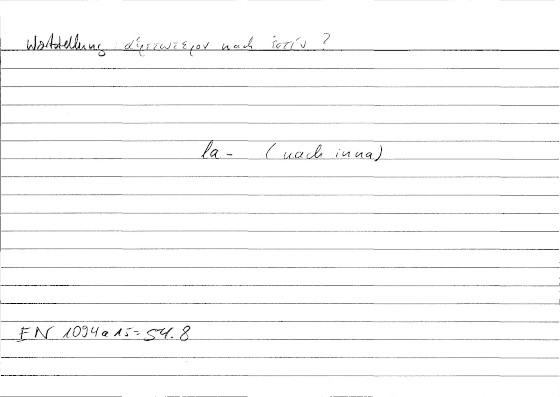 Wortstellung: αἱρετώτερον nach ἐστίν ?
la - ( nach inna)
EN 1094a15 = 54.8